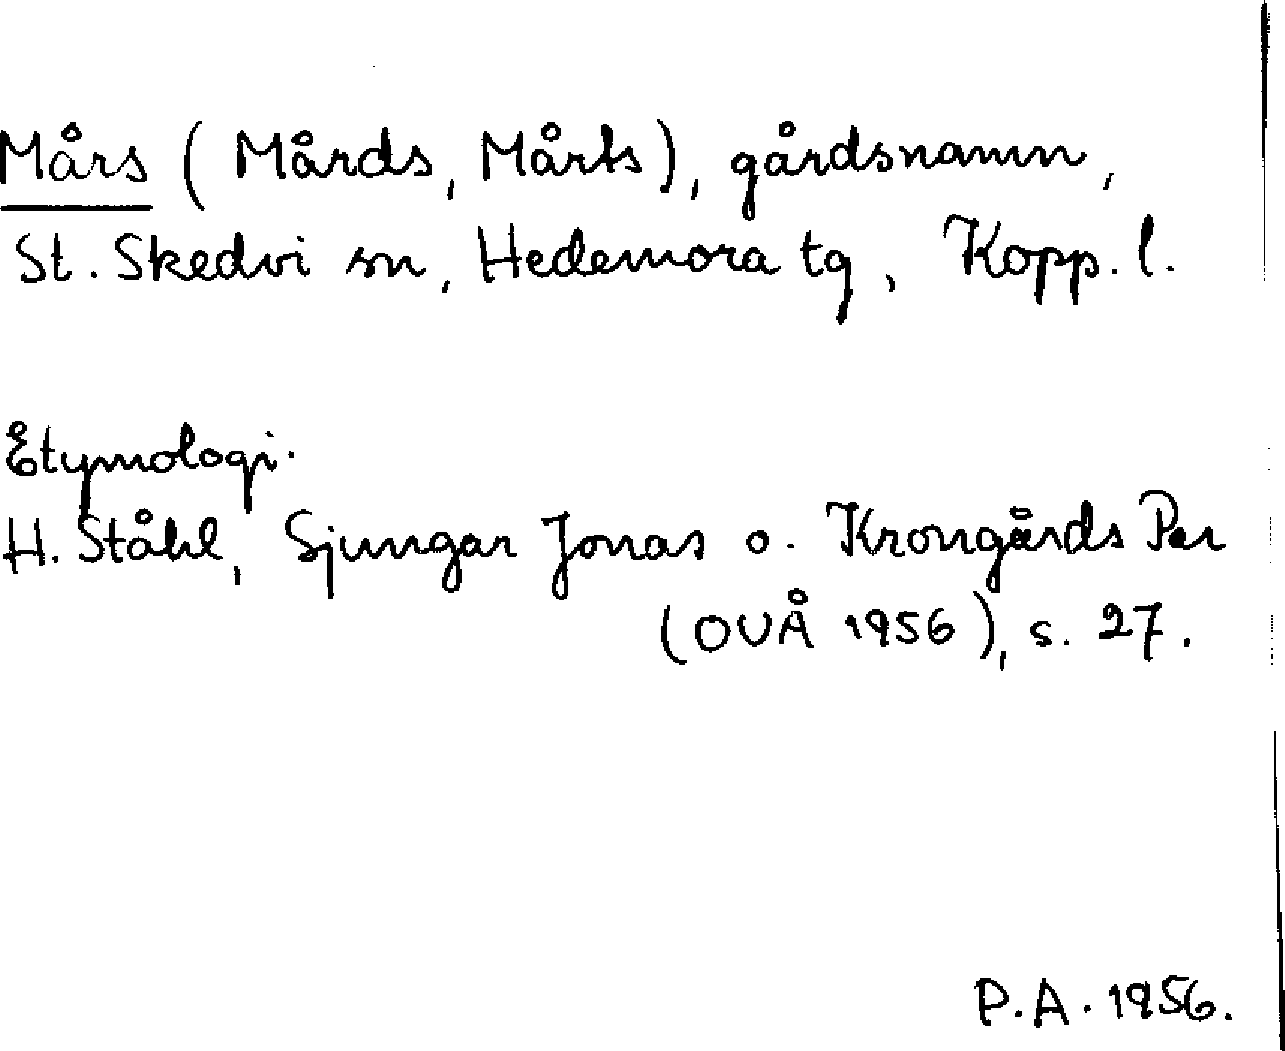 Mårs (Mårds, Mårts), gårdsnamn,
St. Skedvi sn, Hedemora tg, Kopp. l.
Etymologi.
H. Ståhl, Sjungar Jonas o. Krongårds Per
(OUÅ 1956), s. 27.
P.A. 1956.